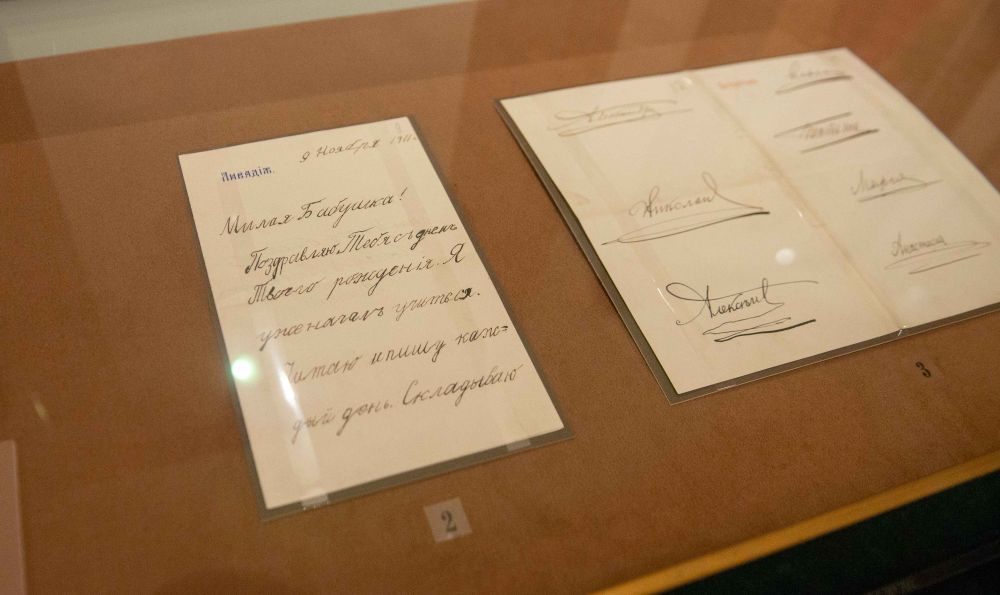 9 Ноября 1911.
Ливадія.
Милая Бабушка!
Поздравляю Тебя съ днемъ
Твоего рожденія. Я
уже началъ учиться.
Читаю и пишу каж=
дый день. Складываю
2
Николай
Алексѣй
Татьяна
Марія
Анастасія
3